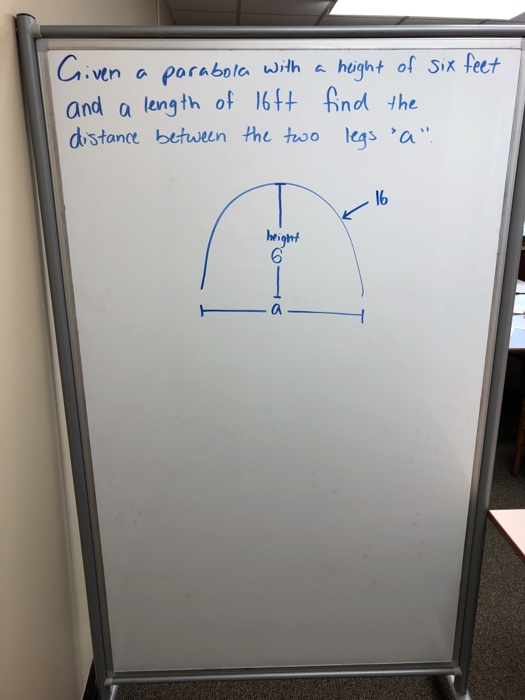 Given a parabola with a height of six feet
and a length of 16ft find the
distance between the two legs "a".
16
height
6
a